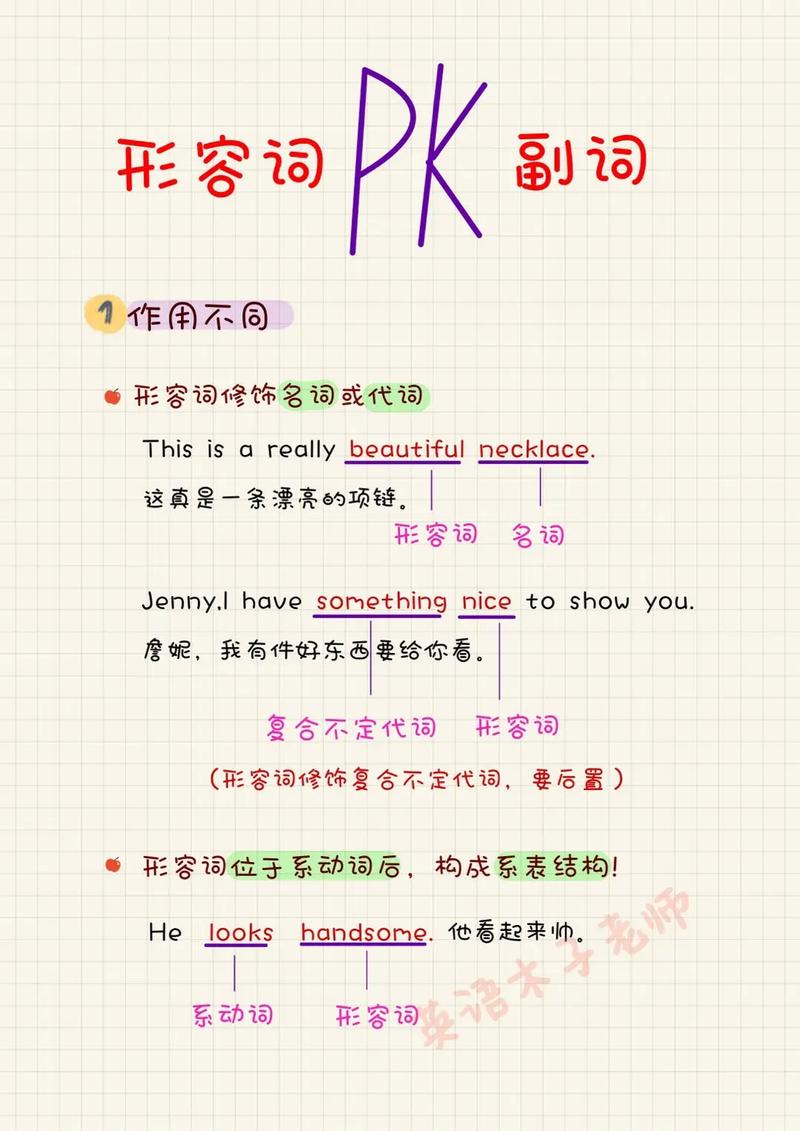 形容词 PK 副词
1 作用不同
形容词修饰名词或代词
This is a really beautiful necklace.
这真是一条漂亮的项链。
形容词 名词
Jenny,I have something nice to show you.
詹妮，我有件好东西要给你看。
复合不定代词 形容词
（形容词修饰复合不定代词，要后置）
形容词位于系动词后，构成系表结构！
He looks handsome. 他看起来帅。
系动词 形容词
英语木子老师